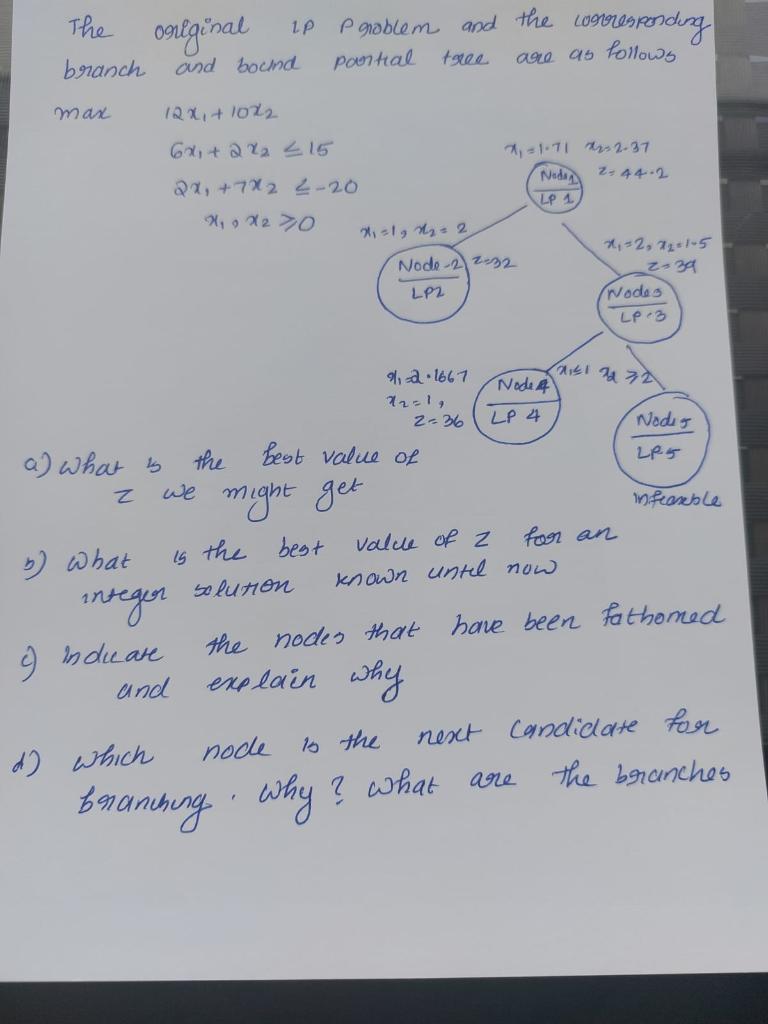 The original IP Problem and the corresponding
branch and bound partial tree are as follows
max 12x₁ + 10x₂
6x₁ + 2x₂ ≤ 15
2x₁ + 7x₂ ≤ -20
x₁, x₂ ≥ 0
x₁ = 1.71 x₂ = 2.37
Node 1 z = 44.2
LP 1
x₁ = 1, x₂ = 2
Node-2 z = 32
LP2
x₁ = 2, x₂ = 1.5
z = 39
Node 3
LP.3
x₁ = 2.1667
x₂ = 1,
z = 36
Node 4
LP 4
x₁ ≤ 1 x₂ ≥ 2
Node 5
LP 5
infeasible
a) what is the best value of
z we might get
b) what is the best value of z for an
integer solution known until now
c) indicate the nodes that have been fathomed
and explain why
d) which node is the next candidate for
branching. why? what are the branches